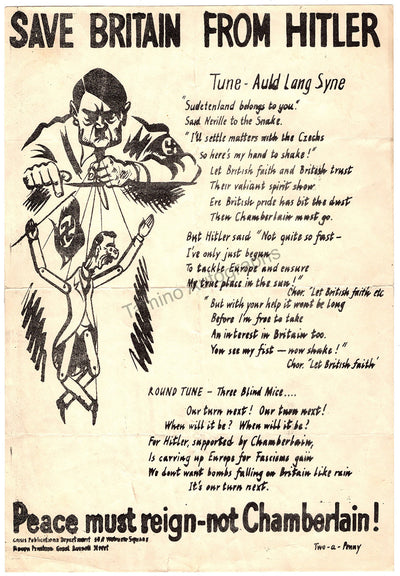 SAVE BRITAIN FROM HITLER
Tune - Auld Lang Syne
"Sudetenland belongs to you."
Said Neville to the Snake.
"I'll settle matters with the Czechs
So here's my hand to shake!"
Let British faith and British trust
Their valiant spirit show
Ere British pride has bit the dust
Then Chamberlain must go.
But Hitler said "Not quite so fast -
I've only just begun
To tackle Europe and ensure
My true place in the sun!"
Chor. "Let British faith etc
"But with your help it wont be long
Before I'm free to take
An interest in Britain too.
You see my fist - now shake!"
Chor. "Let British faith"
Tamino Autographs
ROUND TUNE - Three Blind Mice....
Our turn next! Our turn next!
When will it be? When will it be?
For Hitler, supported by Chamberlain,
Is carving up Europe for Fascisms gain
We dont want bombs falling on Britain like rain
It's our turn next.
Peace must reign-not Chamberlain!
Crisis Publications Department
Great Russell Street
Two-a-Penny